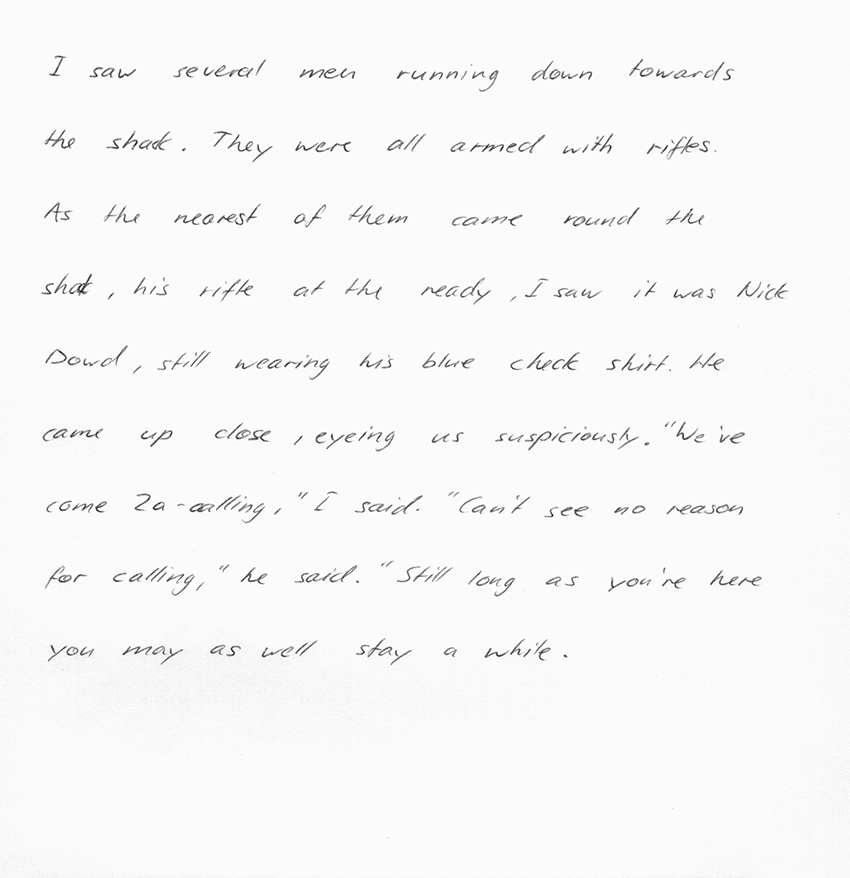 I saw several men running down towards
the shack. They were all armed with rifles.
As the nearest of them came round the
shack, his rifle at the ready, I saw it was Nick
Dowd, still wearing his blue check shirt. He
came up close, eyeing us suspiciously. "We've
come a-calling," I said. "Can't see no reason
for calling," he said. "Still long as you're here
you may as well stay a while.